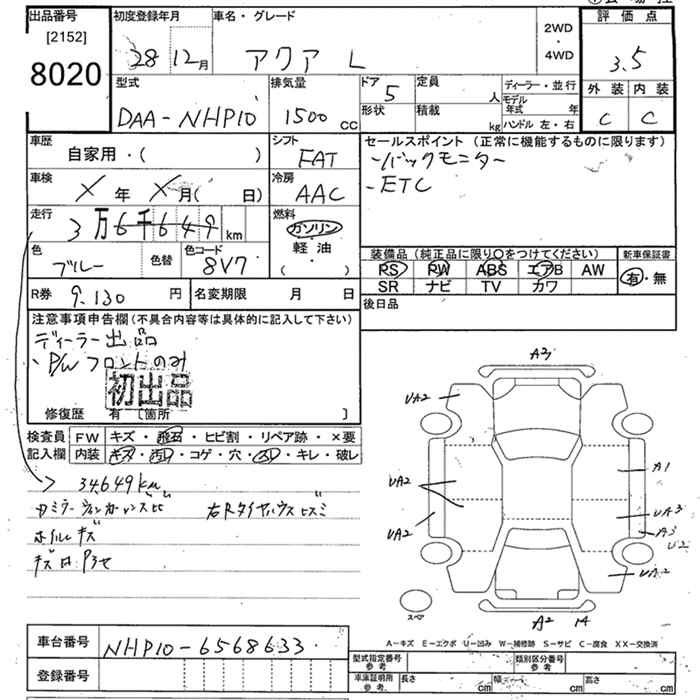 出品番号
[2152]
8020
初度登録年月
28 12月
車名・グレード
アクア L
2WD
・
4WD
評価点
3.5
外装 内装
C C
型式
DAA-NHP10
排気量
1500 CC
ドア
5
定員
人
形状
積載
kg
ディーラー・並行
モデル年式 年
ハンドル 左・右
車歴
自家用・( )
シフト
FAT
セールスポイント (正常に機能するものに限ります)
-バックモニター
-ETC
車検
X 年 X 月( 日)
冷房
AAC
走行
3万6千649 km
燃料
ガソリン
軽油
・
( )
色
ブルー
色替
色コード
8V7
装備品 (純正品に限り○をつけてください)
PS PW ABS エアB AW
SR ナビ TV カワ
新車保証書
有・無
R券
9,130 円
名変期限 月 日
後日品
注意事項申告欄(不具合内容等は具体的に記入して下さい)
ディーラー出品
、P/Wフロントのみ
初出品
修復歴 有 [箇所 ]
検査員記入欄
FW キズ・飛石・ヒビ割・リペア跡・×要
内装 キズ・汚レ・コゲ・穴・スレ・キレ・破レ
34,649km
ホイルキズ
A3
UA2
UA2
UA2
A1
UA3
A3
U2
UA2
A2 1A
スペア
A-キズ E-エクボ U-凹み W-補修跡 S-サビ C-腐食 XX-交換済
車台番号
NHP10-6568633
登録番号
型式指定番号
参考
類別区分番号
参考
車庫証明用
参考
長さ cm 幅 cm 高さ cm